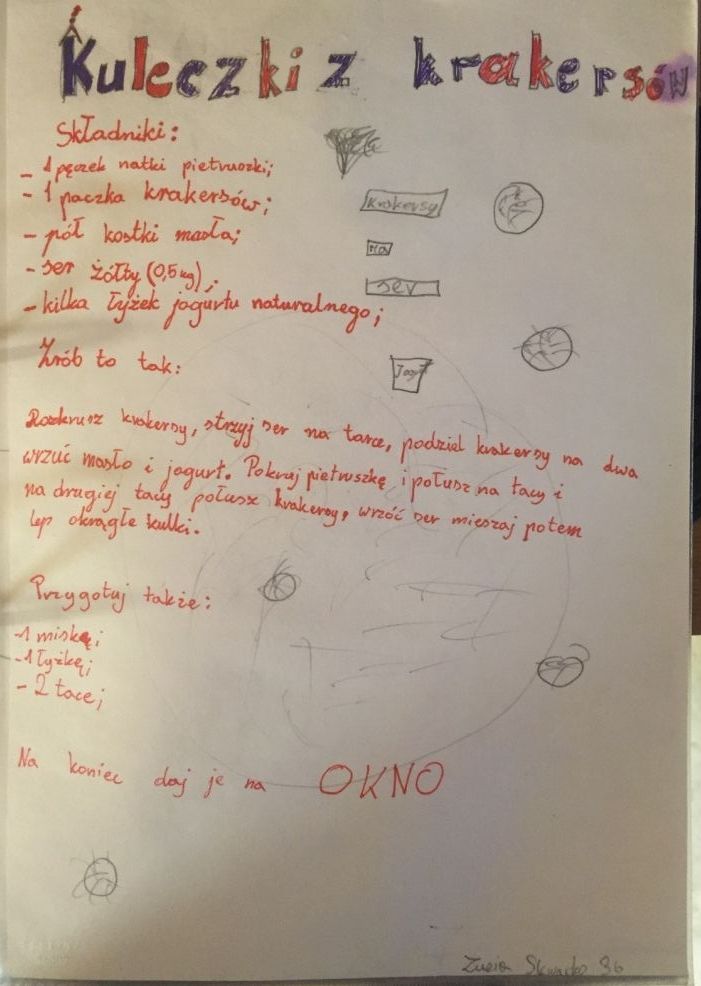 Kuleczki z krakersów
Składniki:
- 1 pęczek natki pietruszki;
- 1 paczka krakersów;
Krakersy
- pół kostki masła;
- ser żółty (0,5 kg);
ser
- kilka łyżek jogurtu naturalnego;
Zrób to tak:
Rozkrusz krakersy, strzyj ser na tarce, podziel krakersy na dwa
wrzuć masło i jogurt. Pokruj pietruszkę i połusz na tacy i
na drugiej tacy połusz krakersy, wrzóć ser mieszaj potem
lep okrągłe kulki.
Przygotuj także:
-1 miskę;
-1 łyżkę;
- 2 tace;
Na koniec daj je na OKNO
Zuzia 3b